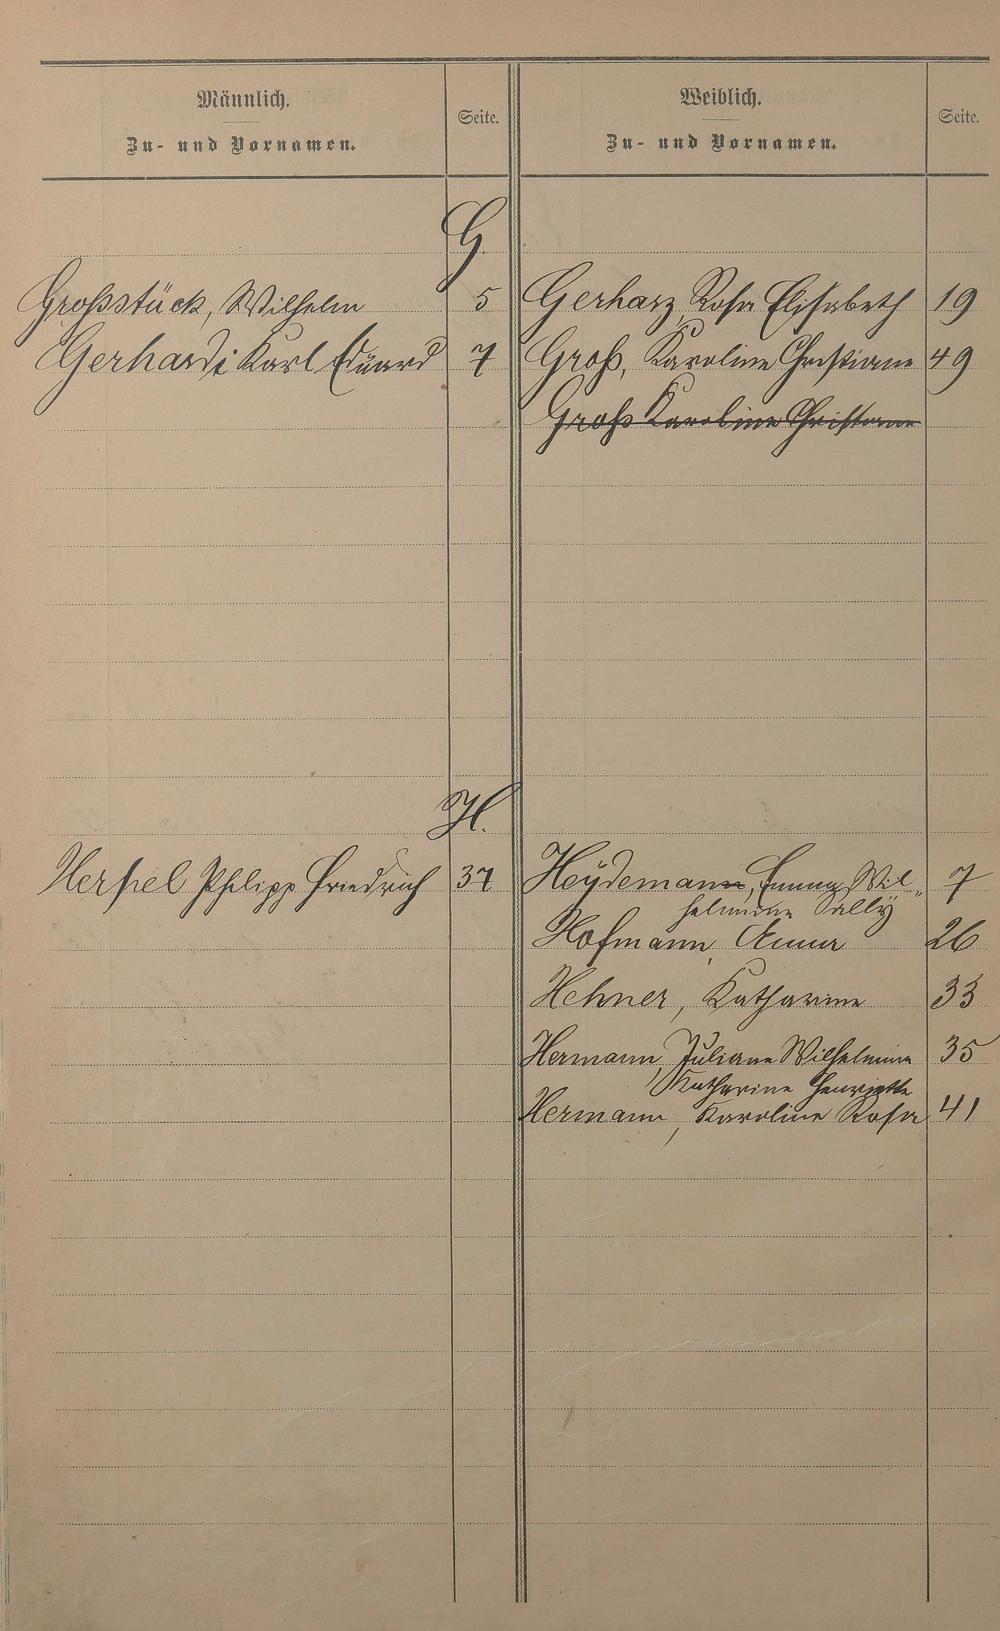 Männlich.
Zu- und Vornamen.
Seite.
Weiblich.
Zu- und Vornamen.
Seite.
G.
Großstück, Wilhelm 5
Gerharz, Rosa Elisabeth 19
Gerhardi Karl Eduard 7
Groß, Karoline Christiane 49
Groß Karoline Christiane
H.
Herpel Philipp Friedrich 37
Heÿdemann, Emma Wil- 7
helmine Sally
Hofmann, Anna 26
Hehner, Katharine 33
Hermann, Juliane Wilhelmine 35
Katharine Henriette
Hermann, Karoline Rosa 41